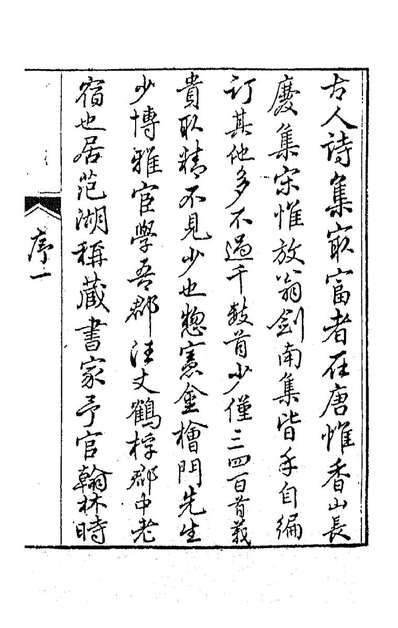 古人詩集㝡富者在唐惟香山長
慶集宋惟放翁劍南集皆手自編
訂其他多不過千數首少僅三四百首葢
貴取精不見少也總憲金檜門先生
少博雅宦學吾郡汪丈鶴桴郡中老
宿也居范湖稱藏書家予官翰林時
序一